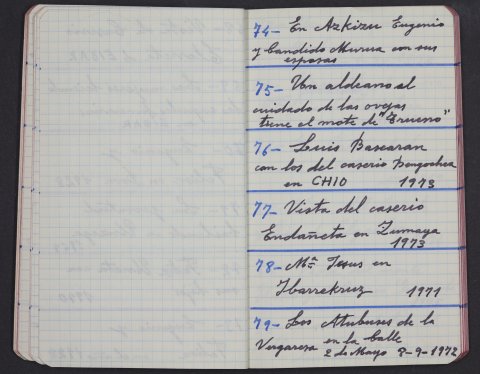 74- En Azkizu Eugenio
y Candido Murua con sus
esposas
75- Un aldeano al
cuidado de las ovejas
tiene el mote de "Trueno"
76- Luis Bascaran
con los del caserio Bengochea
en CHIO 1973
77- Vista del caserio
Endañeta en Zumaya
1973
78- Mª Jesus en
Ibarrekruz 1971
79- Los Autobuses de la
Vergaresa en la Calle
2 de Mayo 8-9-1972